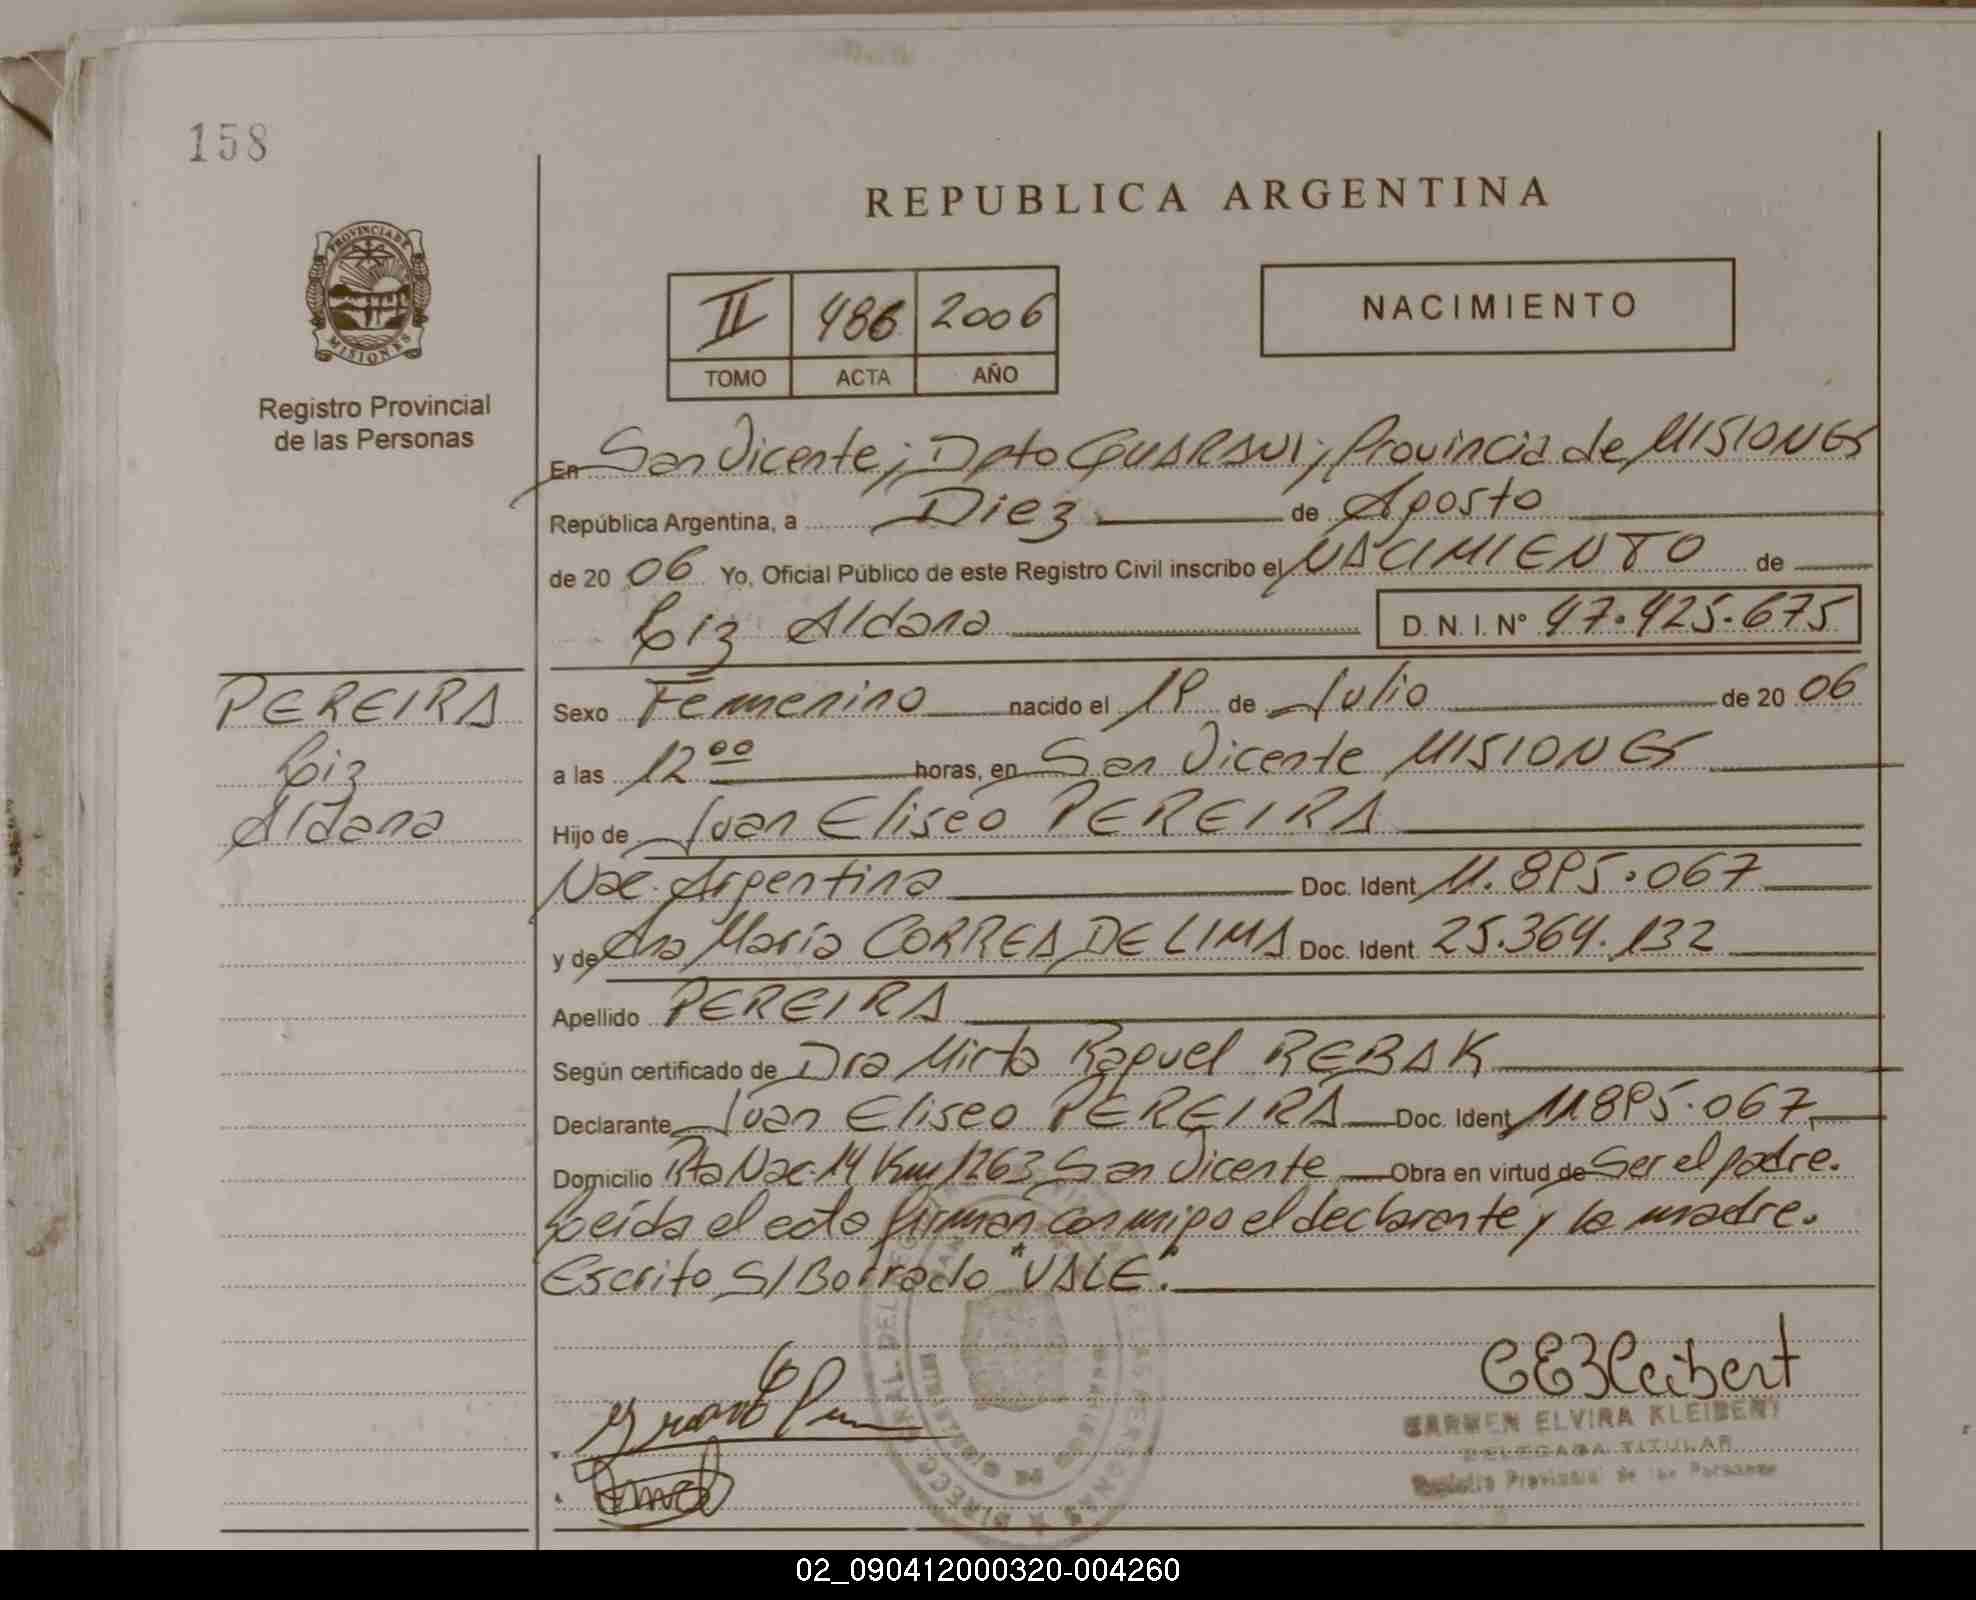 158
REPUBLICA ARGENTINA
PROVINCIA DE
MISIONES
Registro Provincial
de las Personas
II 486 2006
TOMO ACTA AÑO
NACIMIENTO
En San Vicente; Dpto GUARANI; Provincia de MISIONES
República Argentina, a Diez de Agosto
de 20 06 Yo, Oficial Público de este Registro Civil inscribo el NACIMIENTO de
Liz Aldana D. N. I. N° 47.425.675
PEREIRA
Liz
Aldana
Sexo Femenino nacido el 19 de Julio de 20 06
a las 12 00 horas, en San Vicente MISIONES
Hijo de Juan Eliseo PEREIRA
Nac. Argentina Doc. Ident 11.895.067
y de Ana María CORREA DE LIMA Doc. Ident. 25.364.132
Apellido PEREIRA
Según certificado de Dra Mirta Raquel REBAK
Declarante Juan Eliseo PEREIRA Doc. Ident 11895.067
Domicilio Rta Nac. 14 Km 1263 San Vicente Obra en virtud de Ser el padre.
Leída el acta firman conmigo el declarante y la madre.
Escrito S/Borrado "VALE".
CEKleibert
CARMEN ELVIRA KLEIBERT
DELEGADA TITULAR
Registro Provincial de las Personas
02_090412000320-004260